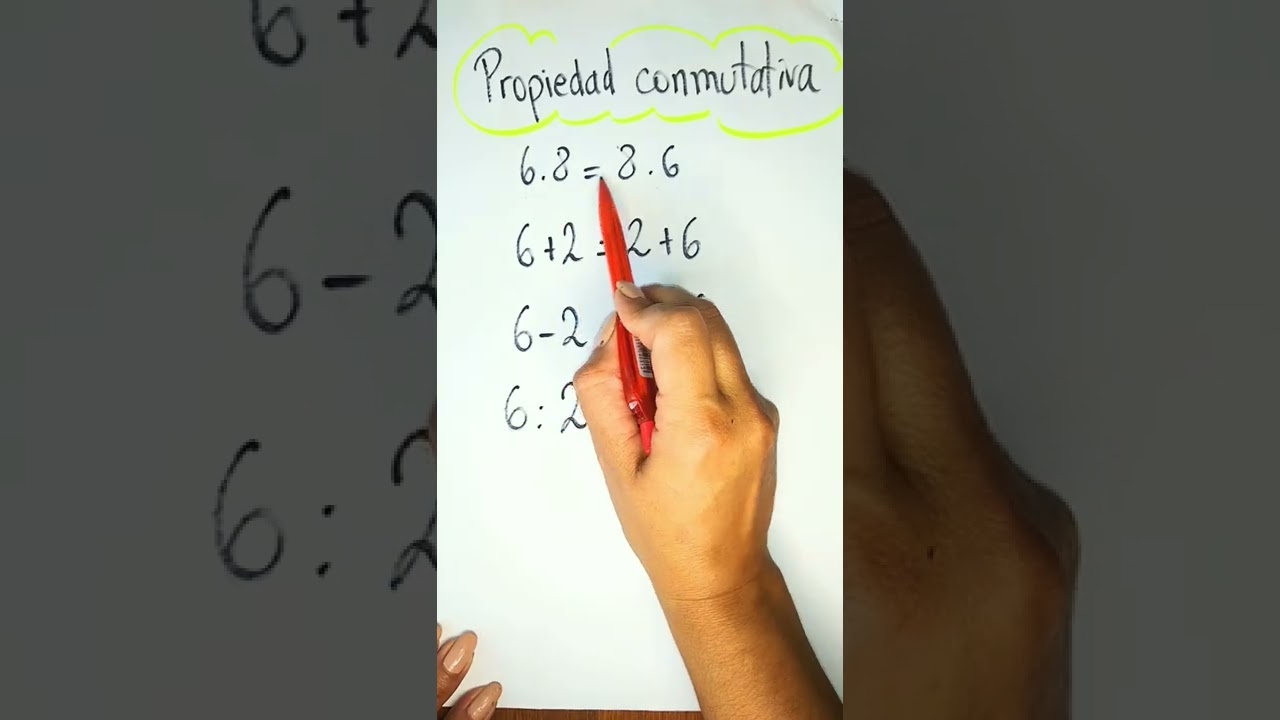 Propiedad conmutativa
6.8 = 8.6
6+2 = 2+6
6-2
6:2